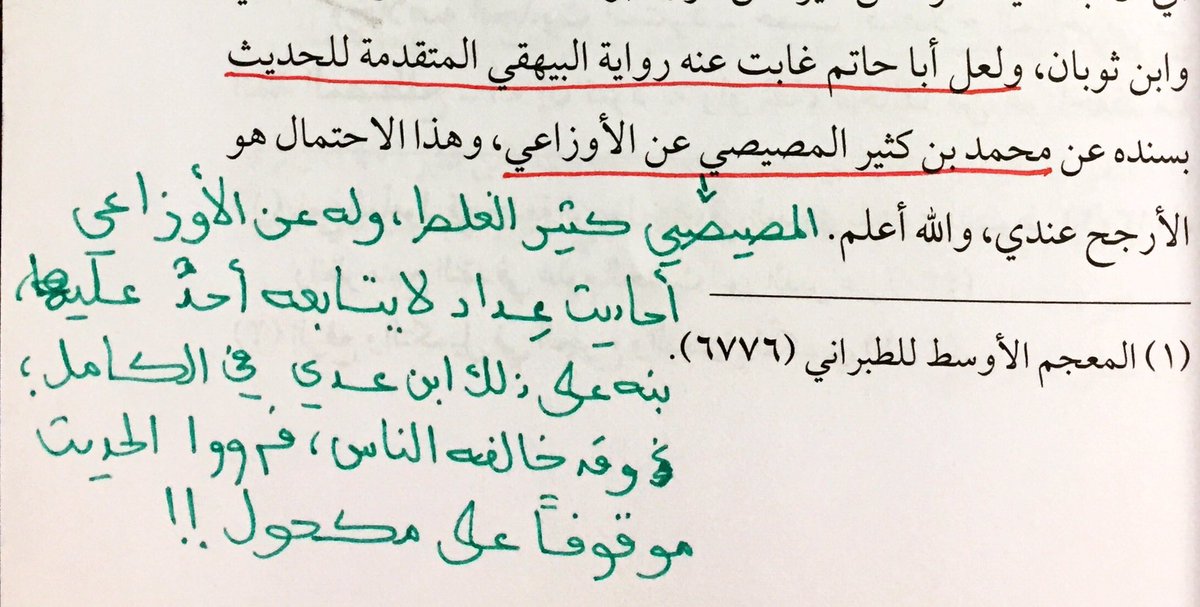 وابن ثوبان، ولعل أبا حاتم غابت عنه رواية البيهقي المتقدمة للحديث
بسنده عن محمد بن كثير المصيصي عن الأوزاعي، وهذا الاحتمال هو
الأرجح عندي، والله أعلم.
المصيصي كثير الغلط، وله عن الأوزاعي
أحاديث عِداد لا يتابعه أحدٌ عليها،
نبه على ذلك ابن عدي في الكامل؛
وقد خالفه الناس، فرووا الحديث
موقوفاً على مكحول!!
(١) المعجم الأوسط للطبراني (٦٧٧٦).